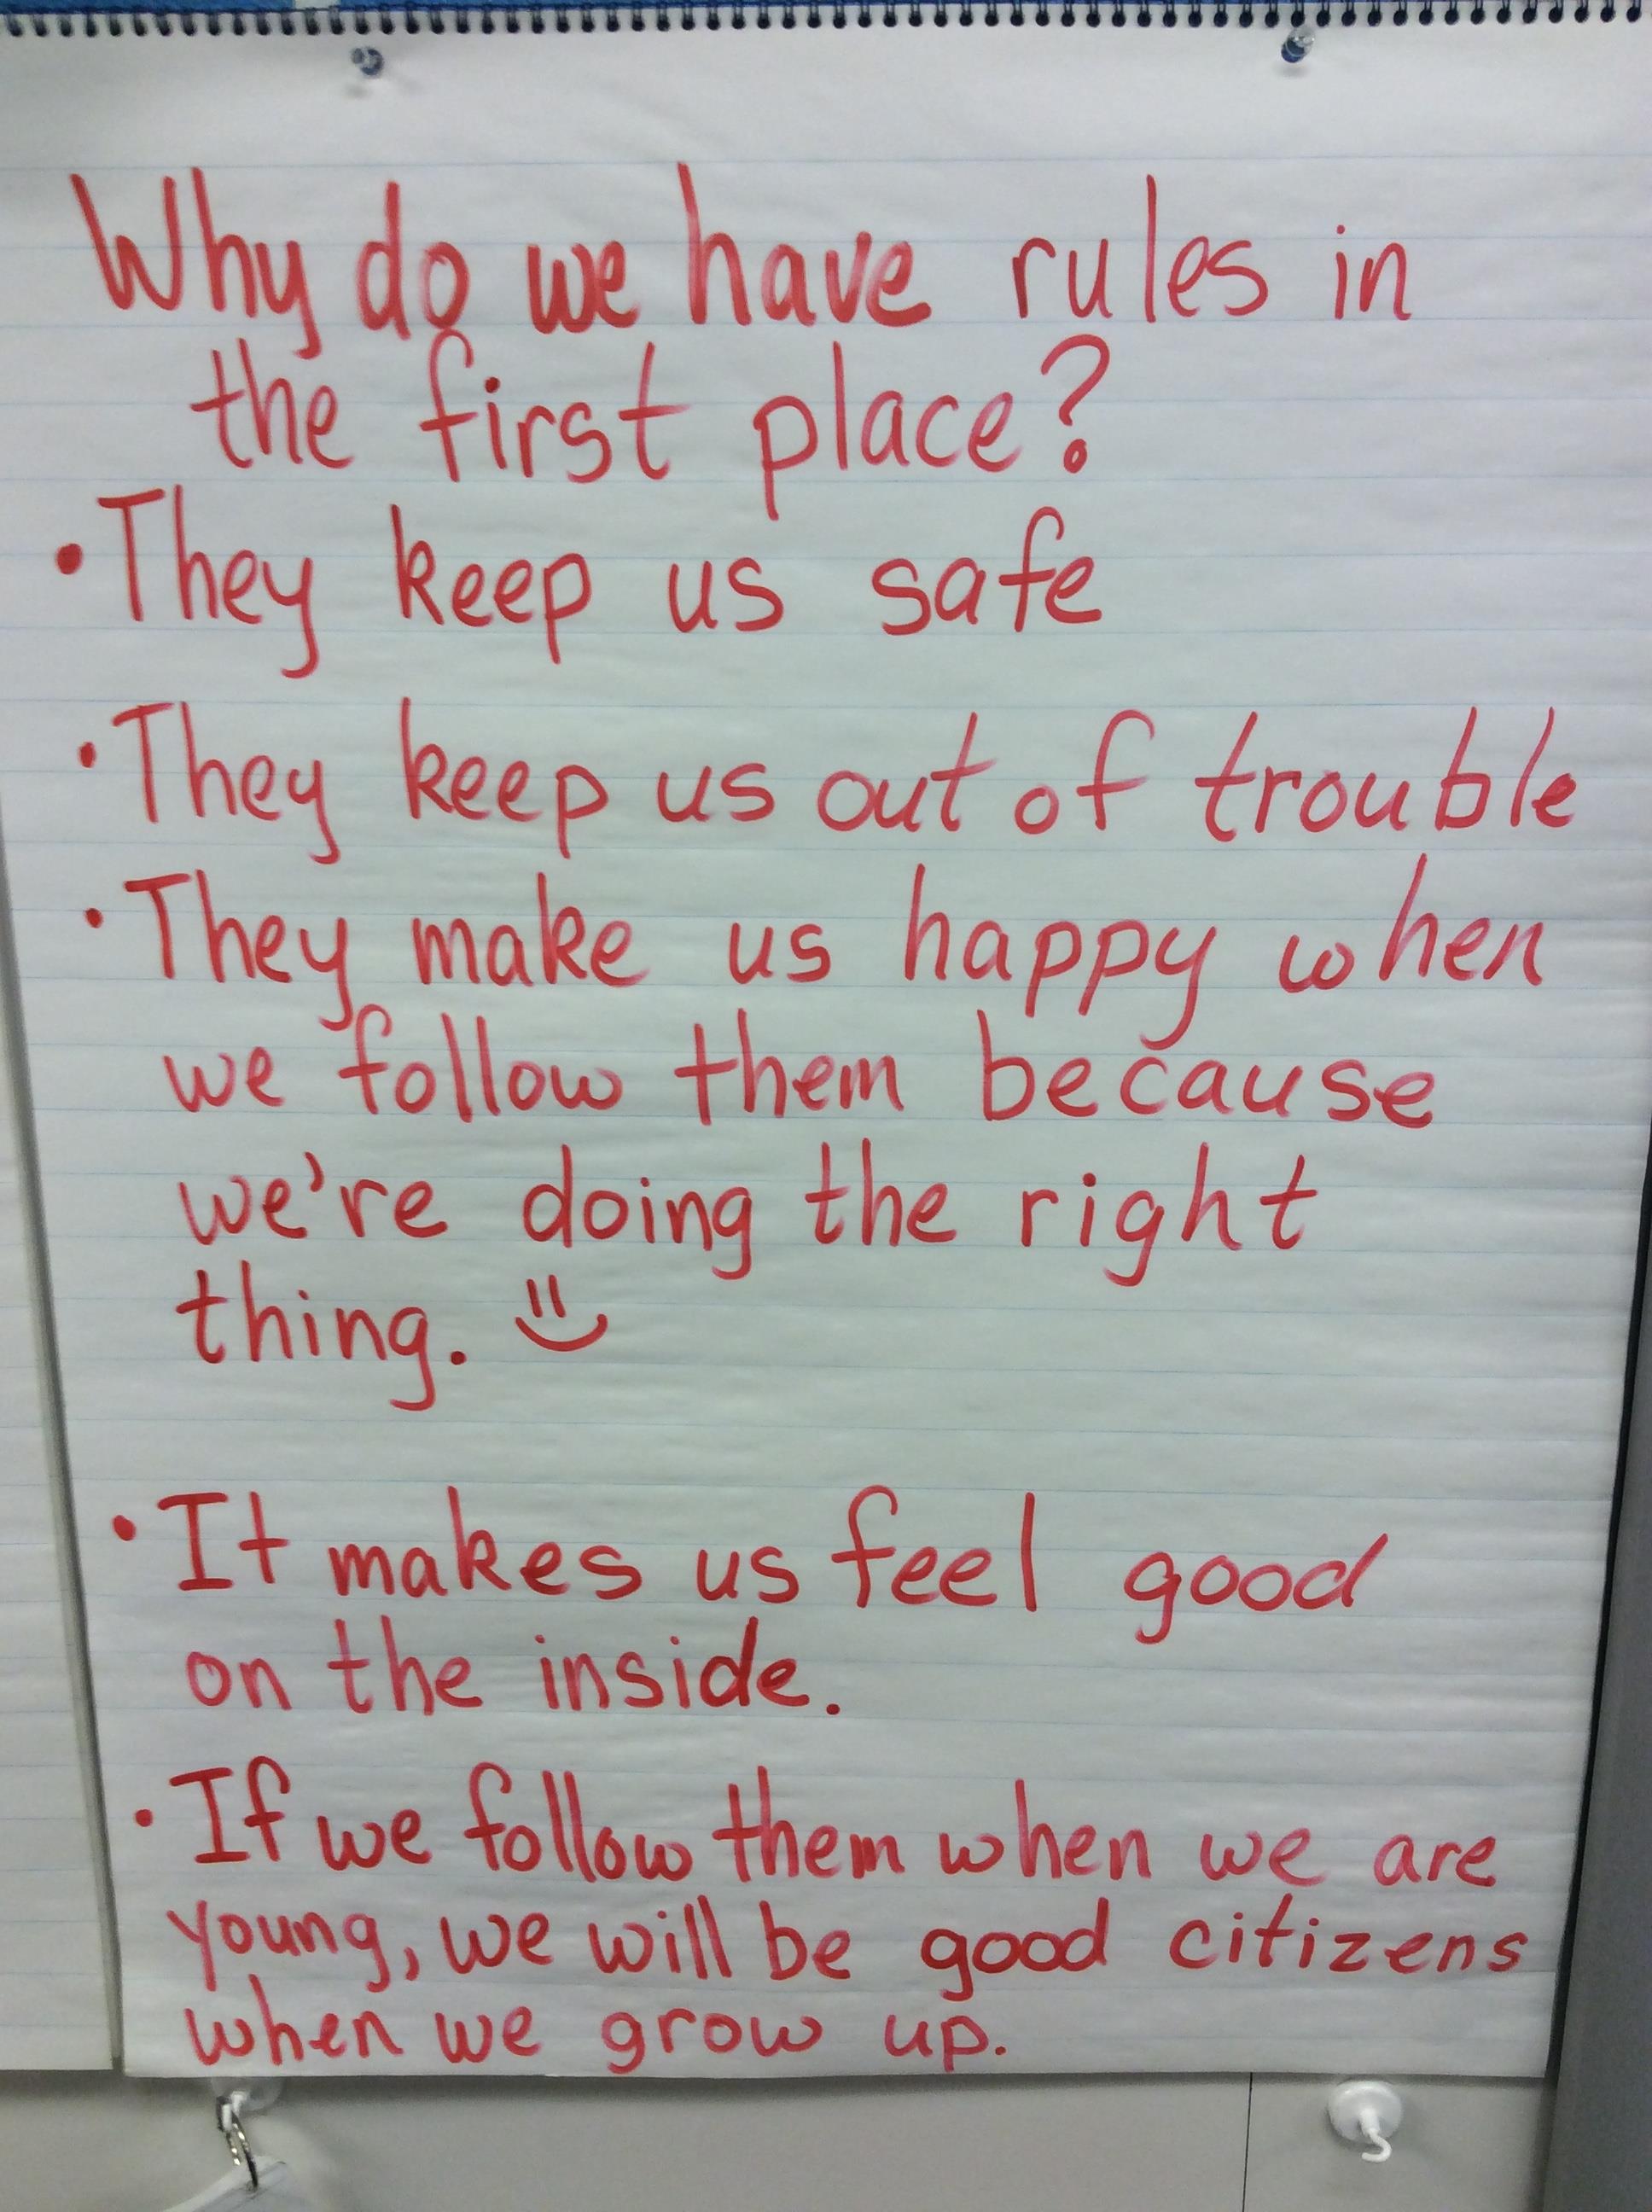 Why do we have rules in
the first place?
• They keep us safe
• They keep us out of trouble
• They make us happy when
we follow them because
we're doing the right
thing.
• It makes us feel good
on the inside.
• If we follow them when we are
young, we will be good citizens
when we grow up.